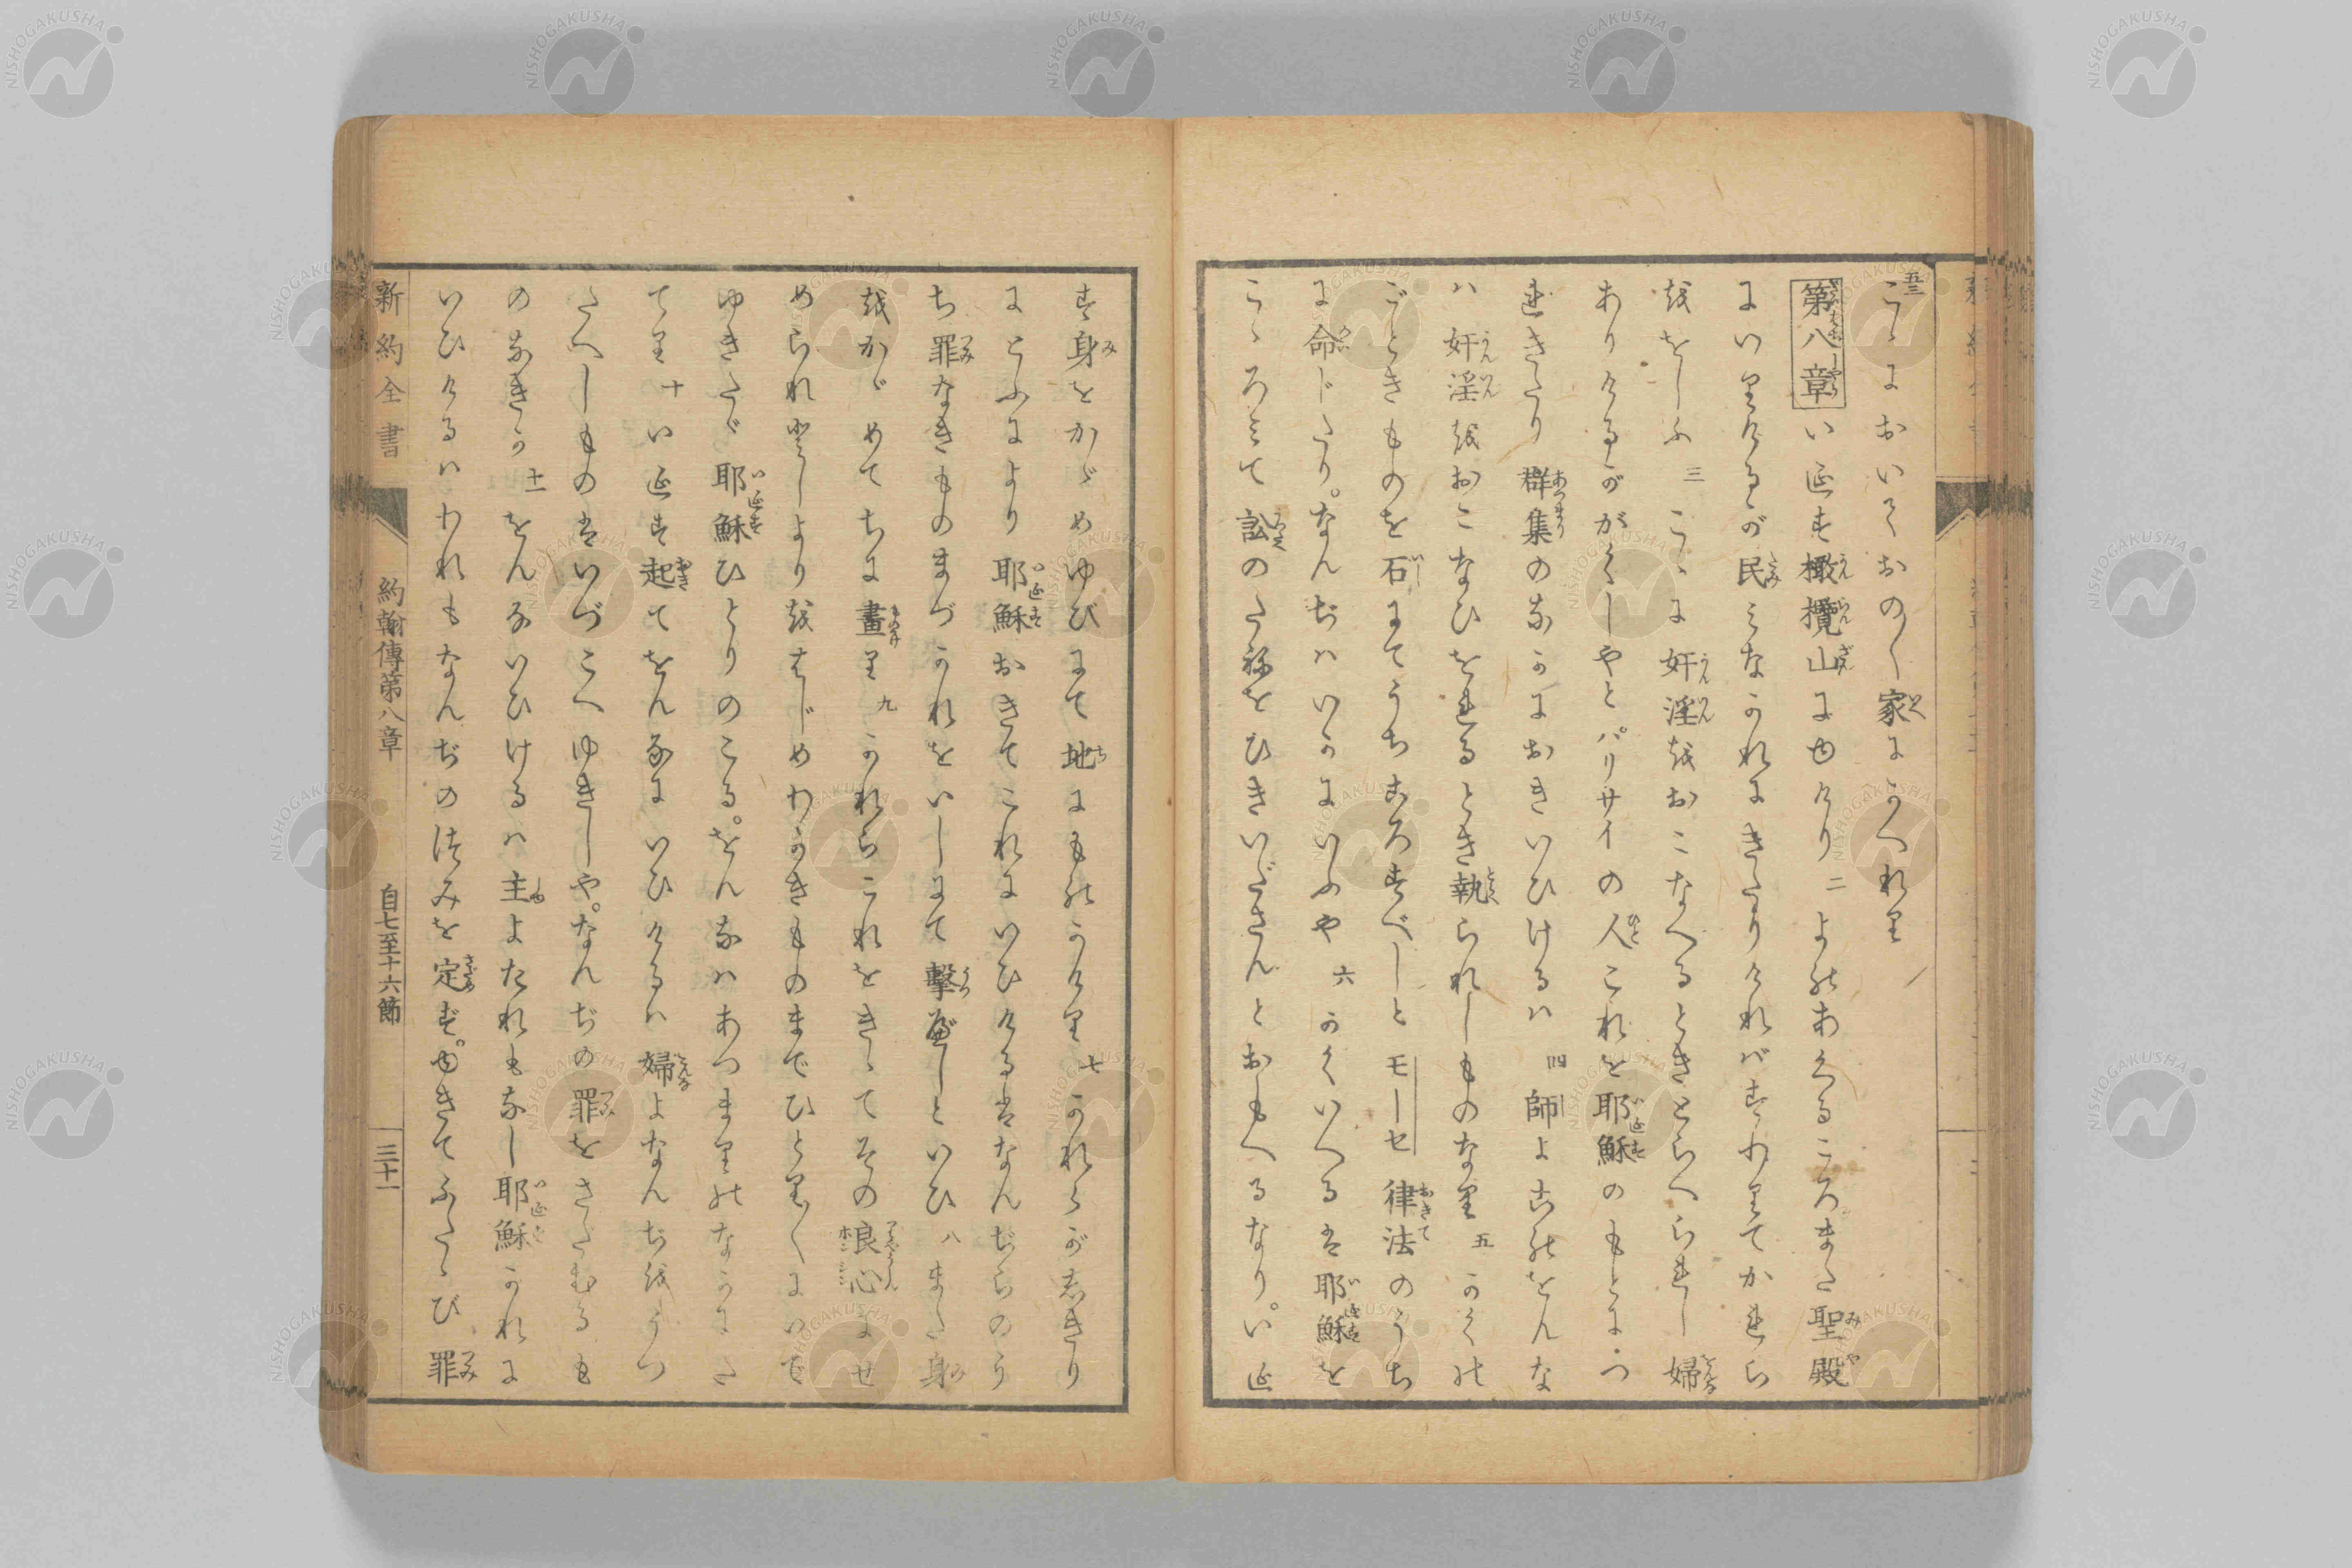 五三 こゝにおいておの〱家にかへれり
第八章 いゑす橄欖山にゆけり 二 よのあくるころまた聖殿
にいりけるが民みなかれにきたりければすわりてかれら
をおしふ 三 こゝに奸淫をおこなへるときとらへられし婦
ありけるががくしやとパリサイの人これを耶穌のもとにつ
れきたり群集のなかにおきいひけるハ 四 師よこのをんな
ハ奸淫をおこなひをれるとき執られしものなり 五 かくの
ごときものを石にてうちころすべしとモーセ律法のうち
に命じたり。なんぢハいかにいふや 六 かくいへるは耶穌を
こゝろみて訟のたねをひきいださんとおもへるなり。いゑ
す身をかゞめゆびにて地にものかけり 七 かれらがしきり
にとふにより耶穌おきてこれにいひけるはなんぢらのう
ち罪なきものまづかれをいしにて擊べしといひ 八 また身
をかゞめてちに畫り 九 かれらこれをきゝてその良心にせ
められ としよりをはじめわかきものまでひとり〱にいで
ゆきたゞ耶穌ひとりのこる。をんなハあつまりのなかにた
てり 十 いゑす起てをんなにいひけるハ婦よなんぢをうつ
たへしものはいづこへゆきしや。なんぢの罪をさだむるも
のなきか 十一 をんないひけるハ主よたれもなし耶穌かれに
いひけるハわれもなんぢのつみを定ず。ゆきてふたゝび罪
新約全書
約翰傳第八章
自七至十六節
三十一
NISHOGAKUSHA